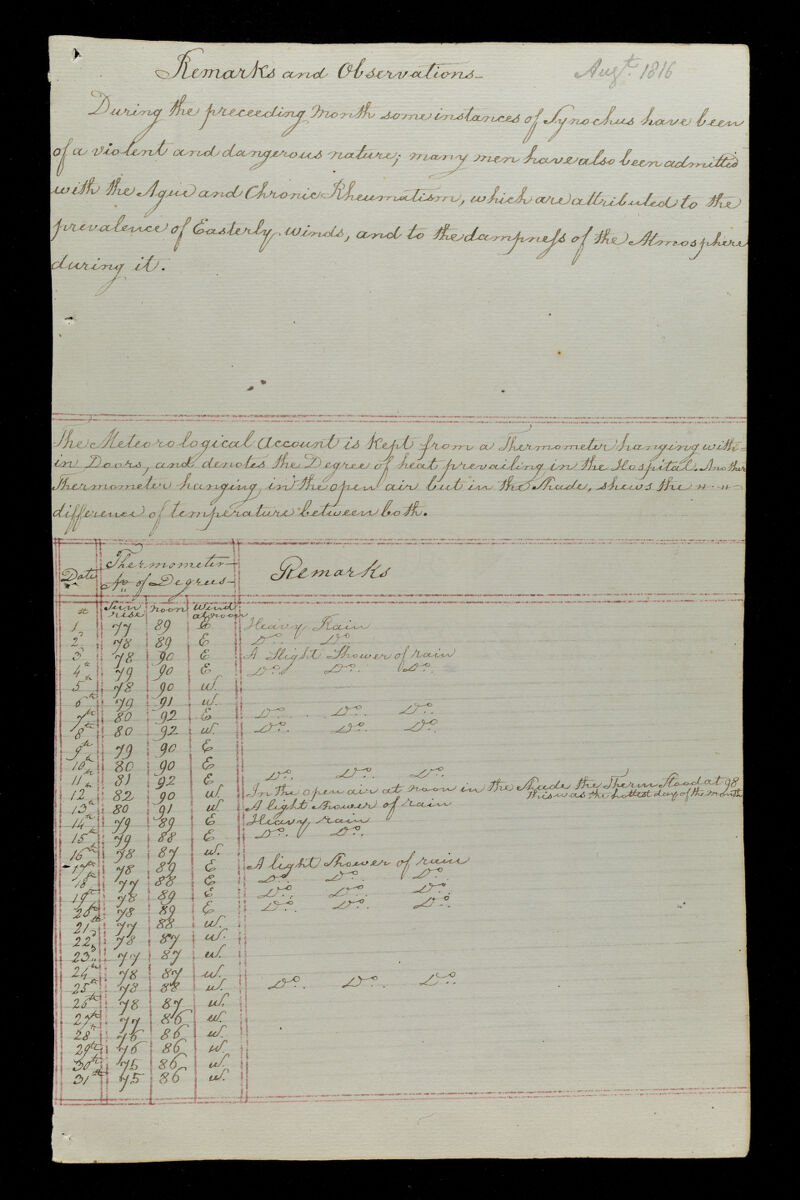 Remarks and Observations_ Augt. 1816
During the preceeding Month some instances of Synochus have been
of a violent and dangerous nature; many men have also been admitted
with the Ague and Chronic Rheumatism, which are attributed to the
prevalence of Easterly winds, and to the dampness of the Atmosphere
during it.
The Meteorological Account is kept from a Thermometer hanging with=
in Doors, and denotes the Degree of heat prevailing in the Hospital. Another
Thermometer hanging in the open air but in the Shade, shews the " " "
difference of temperature between both.
Date Thermometer No. of Degrees Remarks
Sun rise noon Wind at noon
1st 77 89 E Heavy Rain
2d 78 89 E Do. Do.
3d 78 90 E A Slight Shower of rain
4th 79 90 E Do. Do. Do.
5th 78 90 W.
6th 79 91 W.
7th 80 92 E Do. Do. Do.
8th 80 92 W. Do. Do. Do.
9th 79 90 E
10th 80 90 E
11th 81 92 E Do. Do. Do.
12th 82 90 W In the open air at noon in the Shade the Therm. Stood at 98 this was the hottest day of the month
13th 80 91 W A light Shower of rain
14th 79 89 E Heavy rain
15th 79 88 E Do. Do.
16th 78 87 W.
17th 78 89 E A light Shower of rain
18th 77 88 E Do. Do. Do.
19th 78 89 E Do. Do. Do.
20th 78 89 E Do. Do. Do.
21st 77 88 W.
22d 78 87 W.
23d 77 87 W.
24th 78 87 W.
25th 78 88 W. Do. Do. Do.
26th 78 87 W.
27th 77 86 W.
28th 76 86 W.
29th 76 86 W.
30th 75 86 W.
31st 75 86 W.